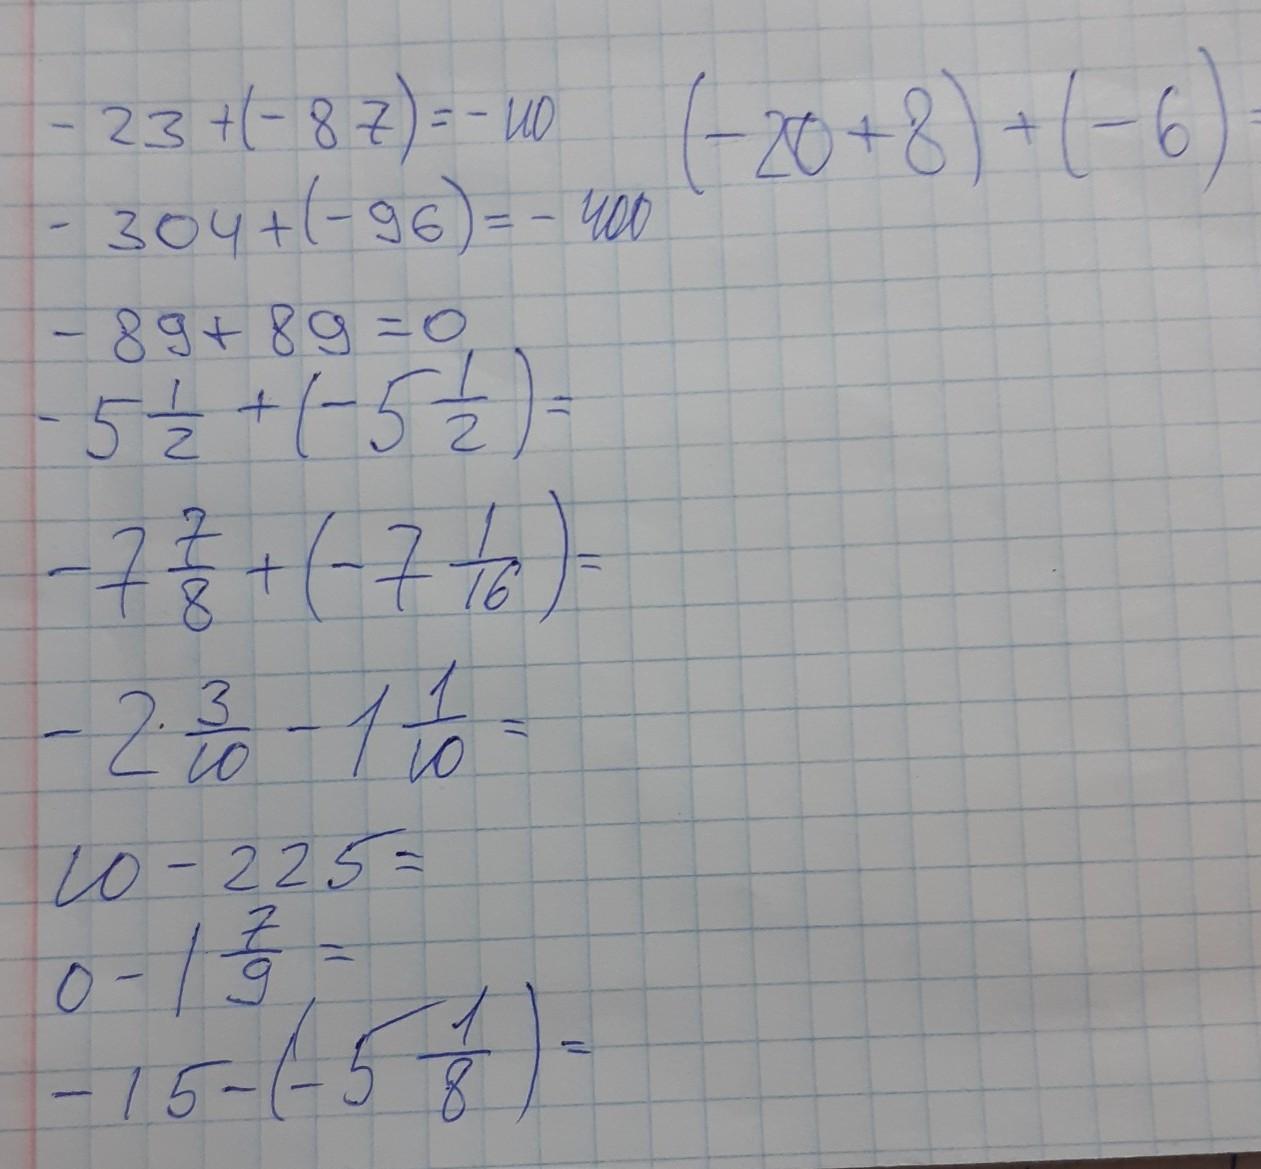 -23+(-87)=-110
(-20+8)+(-6)=
-304+(-96)=-400
-89+89=0
-5 1/2+(-5 1/2)=
-7 7/8+(-7 1/16)=
-2 3/10-1 1/10=
10-225=
0-1 7/9=
-15-(-5 1/8)=